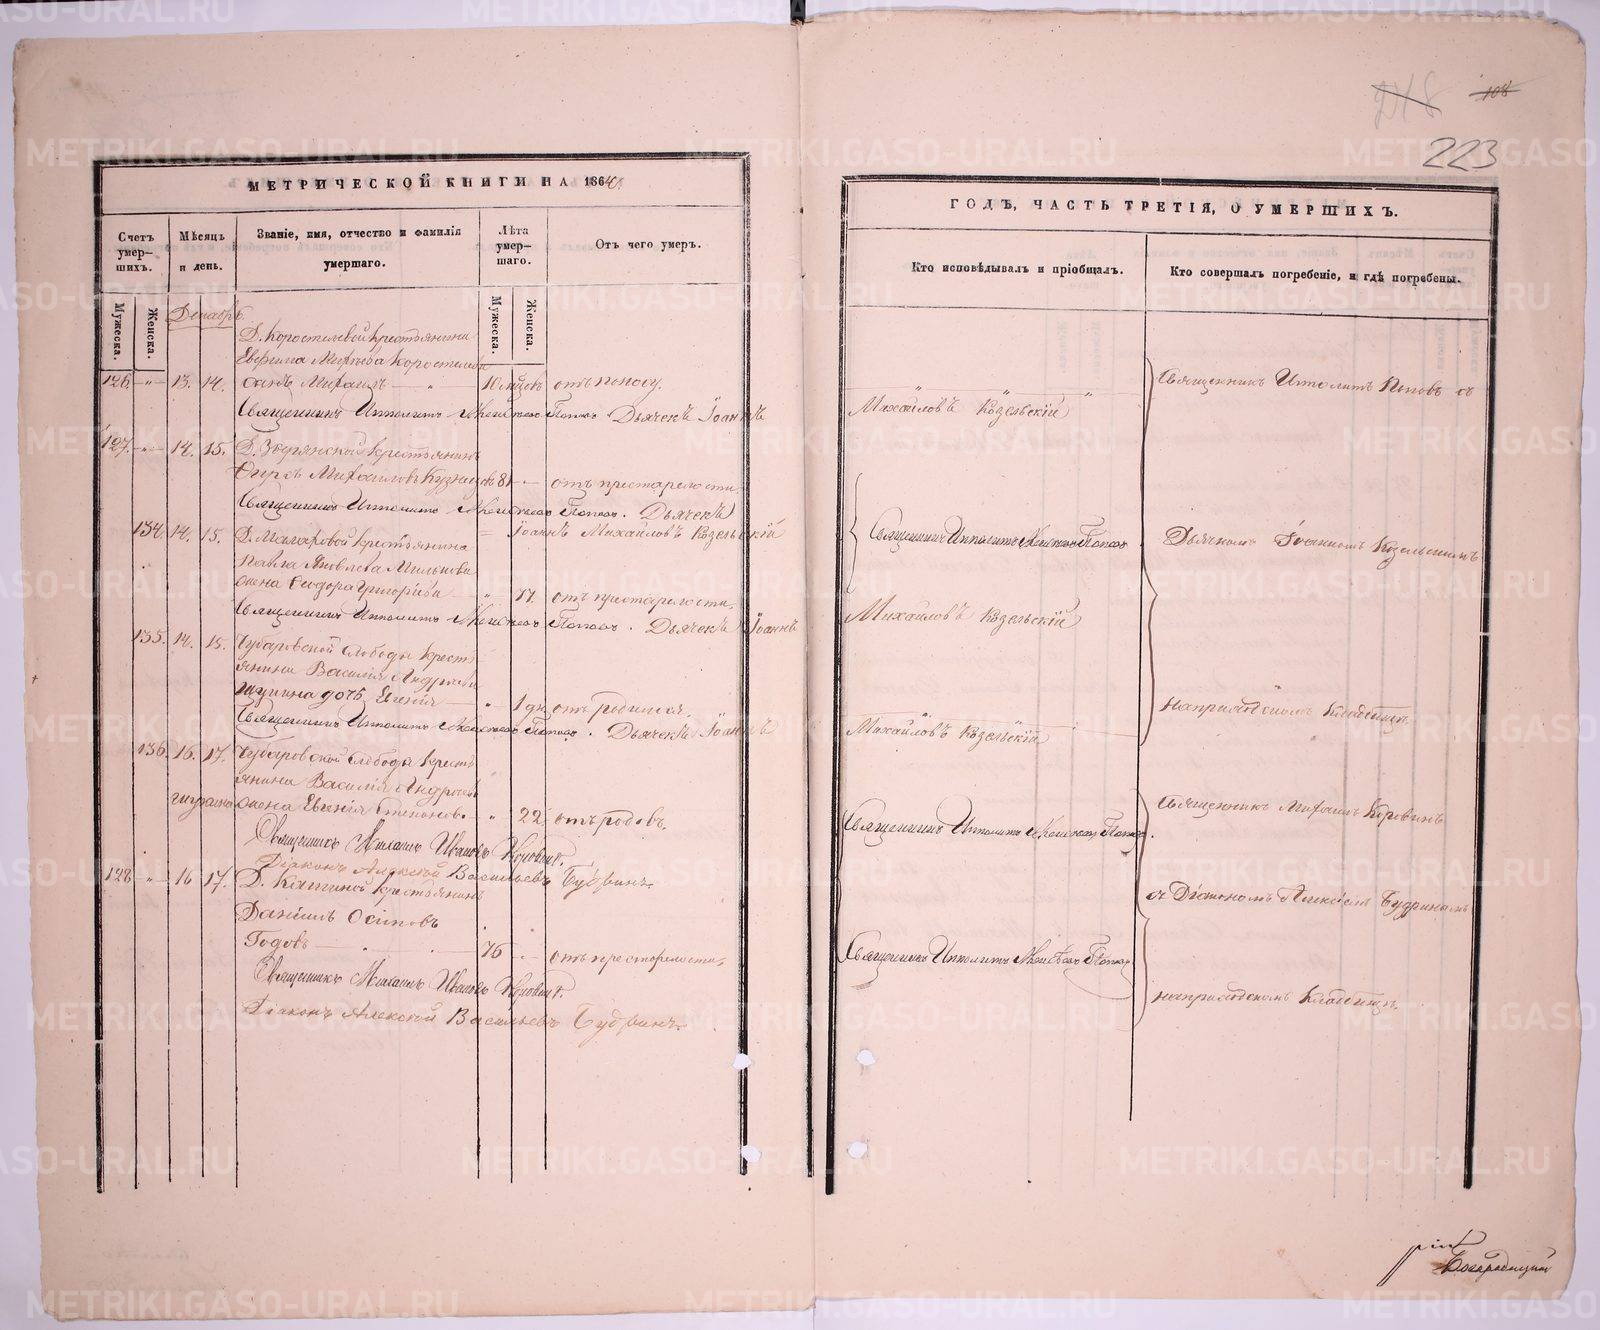 МЕТРИЧЕСКОЙ КНИГИ НА 1864
Счетъ умер-шихъ.
Мѣсяцъ и день.
Званіе, имя, отчество и фамилія умершаго.
Лѣта умер-шаго.
Отъ чего умеръ.
Мужеска.
Женска.
Мужеска.
Женска.
Декабрь
Д. Коростелевой крестьянина
Евфима Михѣева Коростелева
126 - „ - 13. 14. сынъ Михаилъ — „ 10 мѣсяцовъ отъ поносу.
Священникъ Ипполитъ Попов. Дьячекъ Іоаннъ
127. - „ - 14. 15. Д. Зырянской крестьянинъ
Михайловъ Кузнецовъ 81 - „ - отъ престарелости.
Священникъ Ипполитъ Попов. Дьячекъ
Іоаннъ Михайловъ Козельскій
134. 14. 15. Д. Макаровой крестьянина
Павла Яковлева Милькова
жена Ѳеодора Григорьева „ 77. отъ престарелости.
Священникъ Ипполитъ Попов. Дьячекъ Іоаннъ
135. 14. 15. Чубаровской слободы крест-
янина Василія Андреева
дочь Евгенія — „ 1 дн. отъ родимца.
Священникъ Ипполитъ Попов. Дьячекъ Іоаннъ
136. 16. 17. Чубаровской Слободы крест-
янина Василія Андреева
жена Евгенія Степанова „ 22 отъ родовъ.
Священникъ Михаилъ Ивановъ Коровинъ.
Діаконъ Алексій Васильевъ Будринъ
128 - „ - 16 17. Д. Кашиной крестьянинъ
Даніилъ Осиповъ
Годовъ — 76 - „ - отъ престарелости.
Священникъ Михаилъ Ивановъ Коровинъ.
Діаконъ Алексій Васильевъ Будринъ
248
108
223
ГОДЪ, ЧАСТЬ ТРЕТІЯ, О УМЕРШИХЪ.
Кто исповѣдывалъ и пріобщалъ.
Кто совершалъ погребеніе, и гдѣ погребены.
„ „ „
Михайловъ Козельскій
Священникъ Ипполитъ Попов
Михайловъ Козельскій
Михайловъ Козельскій
Священникъ Ипполитъ Попов.
Священникъ Ипполитъ Попов
Священникъ Ипполитъ Поповъ съ
Дьячкомъ Іоанномъ Козельскимъ
на приходскомъ кладбищѣ.
Священникъ Михаилъ Коровинъ
съ Діакономъ Алексіемъ Будринымъ
на приходскомъ кладбищѣ.
METRIKI.GASO-URAL.RU